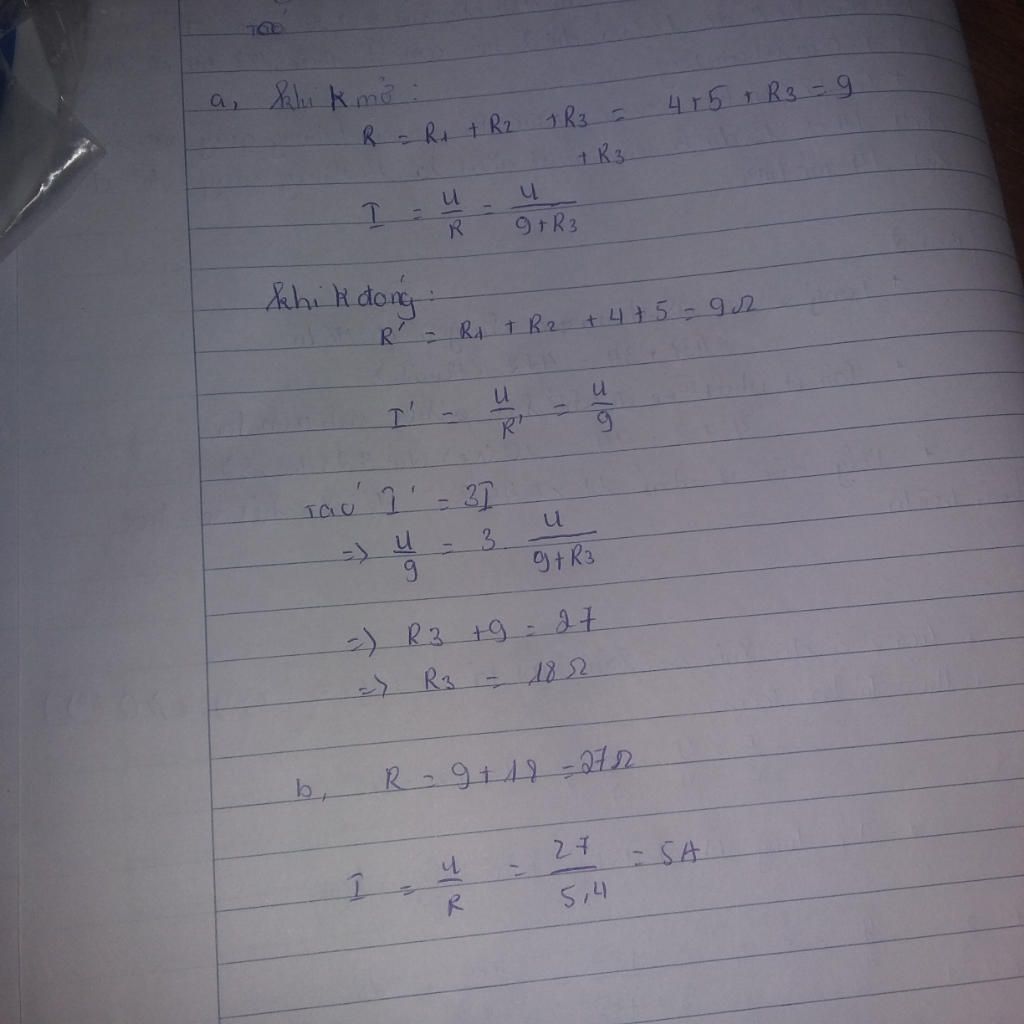 a, Khi K mở :
R = R1 + R2 + R3 = 4+5 + R3 = 9
+ R3
I = U/R = U/(9+R3)
Khi K đóng :
R' = R1 + R2 + 4 + 5 = 9Ω
I' = U/R' = U/9
Ta có I' = 3I
=> U/9 = 3 U/(9+R3)
=> R3 + 9 = 27
=> R3 = 18Ω
b, R = 9 + 18 = 27Ω
I = U/R = 27/5,4 = 5A